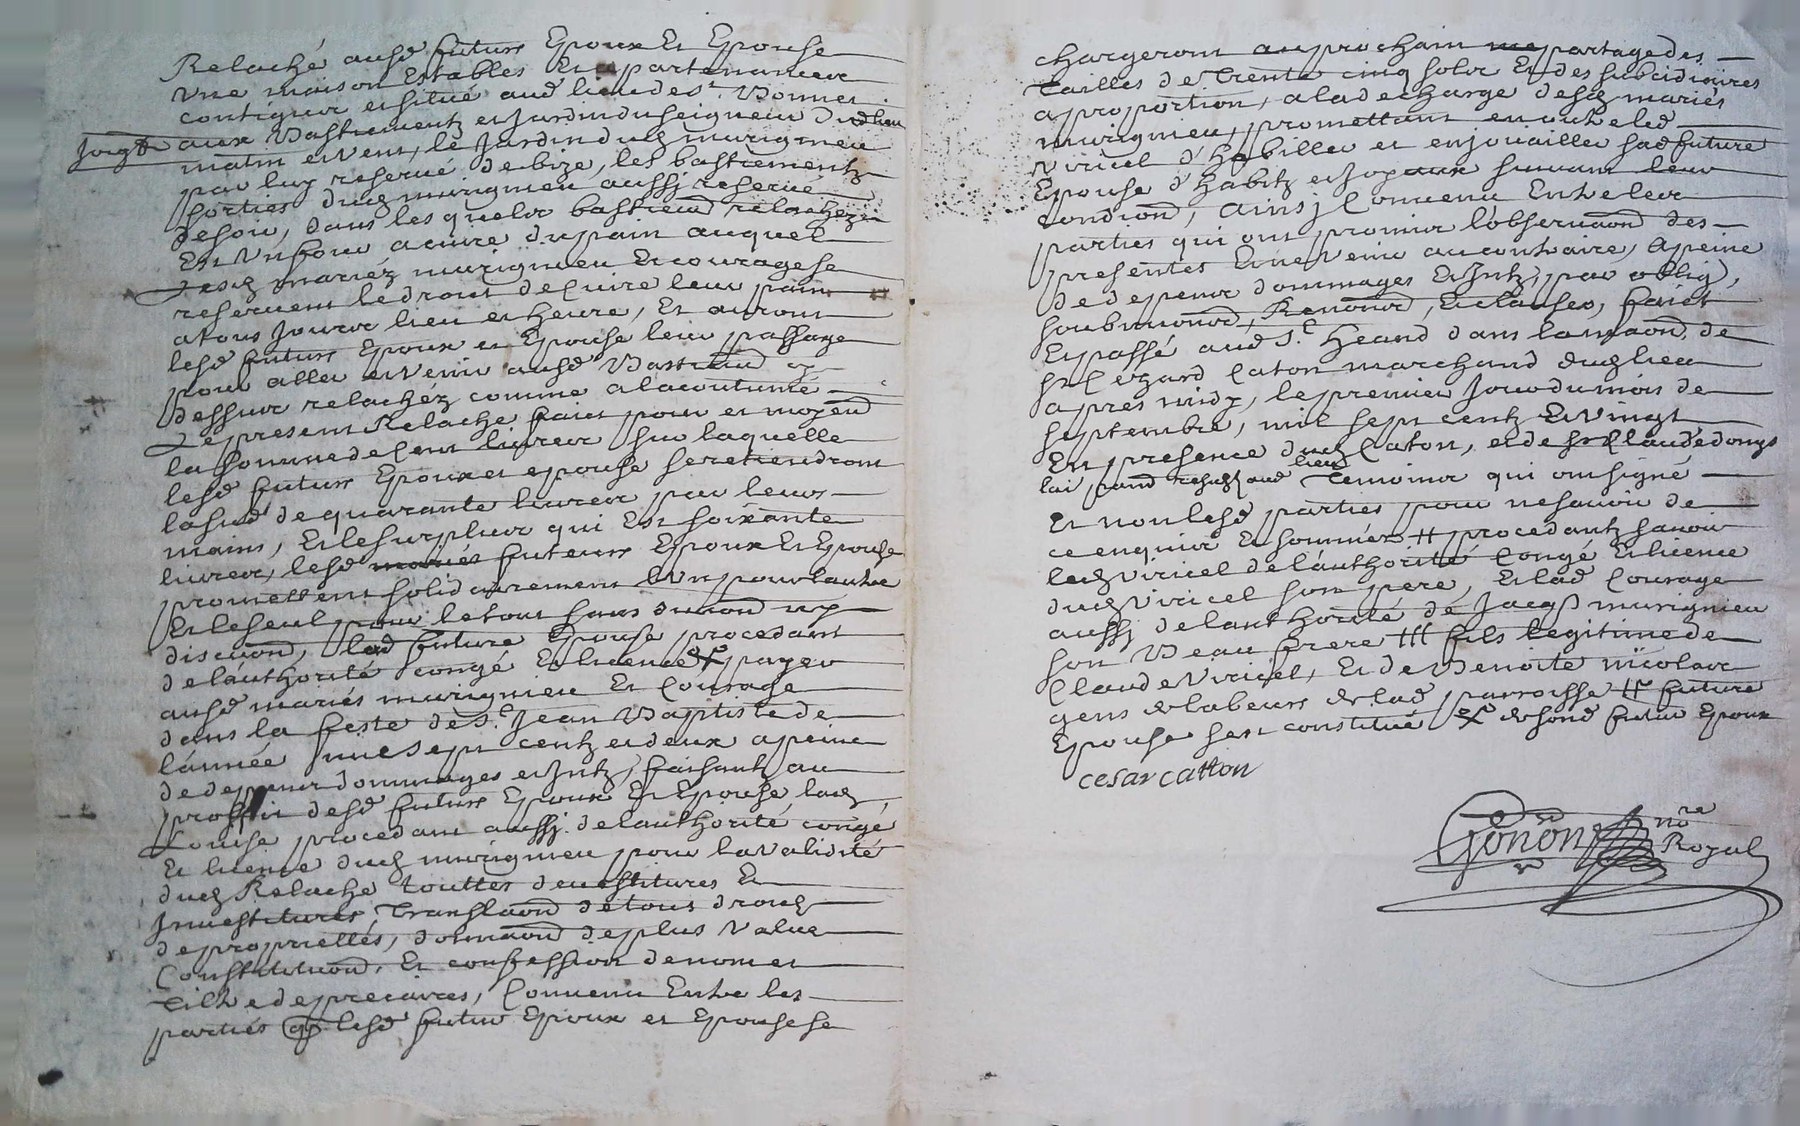 Relaché ausd futurs Epoux Et Epouse
vne maison Estables Et apartenances
contigues et situé aud lieu de St Bonnet
Joigt aux Bastiements et Jardin du seigneur dud lieu
matin et vent, le Jardin dud murigneu
par luy reservé de bize, les bastiements
sorties dud murigneu aussj reservé
de soir, dans lesquels bastiemd relachez
Est vn four a cuire du pain auquel
lesd mariéz murigneu Et courage se
reservent le droit de Cuire leur pain
a tous Jours lieu et heure, Et auront
lesd futurs Epoux et Epouse leur passage
pour aller et venir ausd Bastiemd cy
dessus relachéz comme a lacoutumé
Le present Relache faict pour et moyend
la somme de Cent livres sur laquelle
lesd futurs Epoux et epouse se retiendront
la sud de quarante livres par leurs
mains, Et le surplus qui Est soixante
livres, lesd mariés futeurs Epoux Et Epouse
promettent solidairement L'vn pour lautre
Et le seul pour le tout sans diuiond ny
discuond, lad future Epouse procedant
de láuthorité congé Et licence payer
ausd mariés murigneu Et Courage
dans la feste de St Jean Baptiste de
lánnée mil sept centz et deux a peine
de depens dommages et Intz, faisant au
proffit desd futurs Epoux Et Epouse lad
Courage procedant aussj de lauthorité congé
Et licence dud murigneu pour la validité
dud Relache touttes deuestitures Et
Inuestitures Translaond de tous droits
de proprieltés, donnaond de plus value
Constitutiond, Et confession de nom et
Tiltre de precaires, Conuenu Entre les
parties que lesd futur Epoux et Epouse se
chargeront au prochain partage des
Tailles de Trente cinq sols Et des subcidiaires
a proportion, a la decharge desd mariés
murigneu, promettant en outre led
viricel d'Habiller et enjouailler sad future
Epouse d'Habitz et Joyaux suiuant leur
condiond, ainsj Conuenu Entre les
parties qui ont promis lobseruaond des
presentes Et ne venir au contraire, a peine
de depens dommages Et Intz, par oblig,
soubmionds, Renonds, Et clauses, faict
Et passé aud St heand dans la maond de
sr Cezard Caton marchand dud lieu
apres midy, le premier Jour du mois de
septembre, mil sept centz Et vingt
En presence dud Caton, et de sr Claude donys
lieu
aud Temoins qui ont signé
Et non lesd parties pour ne sauoir de
ce enquis Et sommés # procedant sauoir
led viricel de láuthorité Congé Et licence
dud viricel son pere, Et lad Courage
aussj de lauthorité de Jacqs murigneu
son Beau frere # fils legitime de
Claude viricel, Et de Benoite nicolas
gens de labeurs de lad parroisse # future
Epouse sen constitué de sond futur Epoux
cesar catton
Gonon
nore
Royal